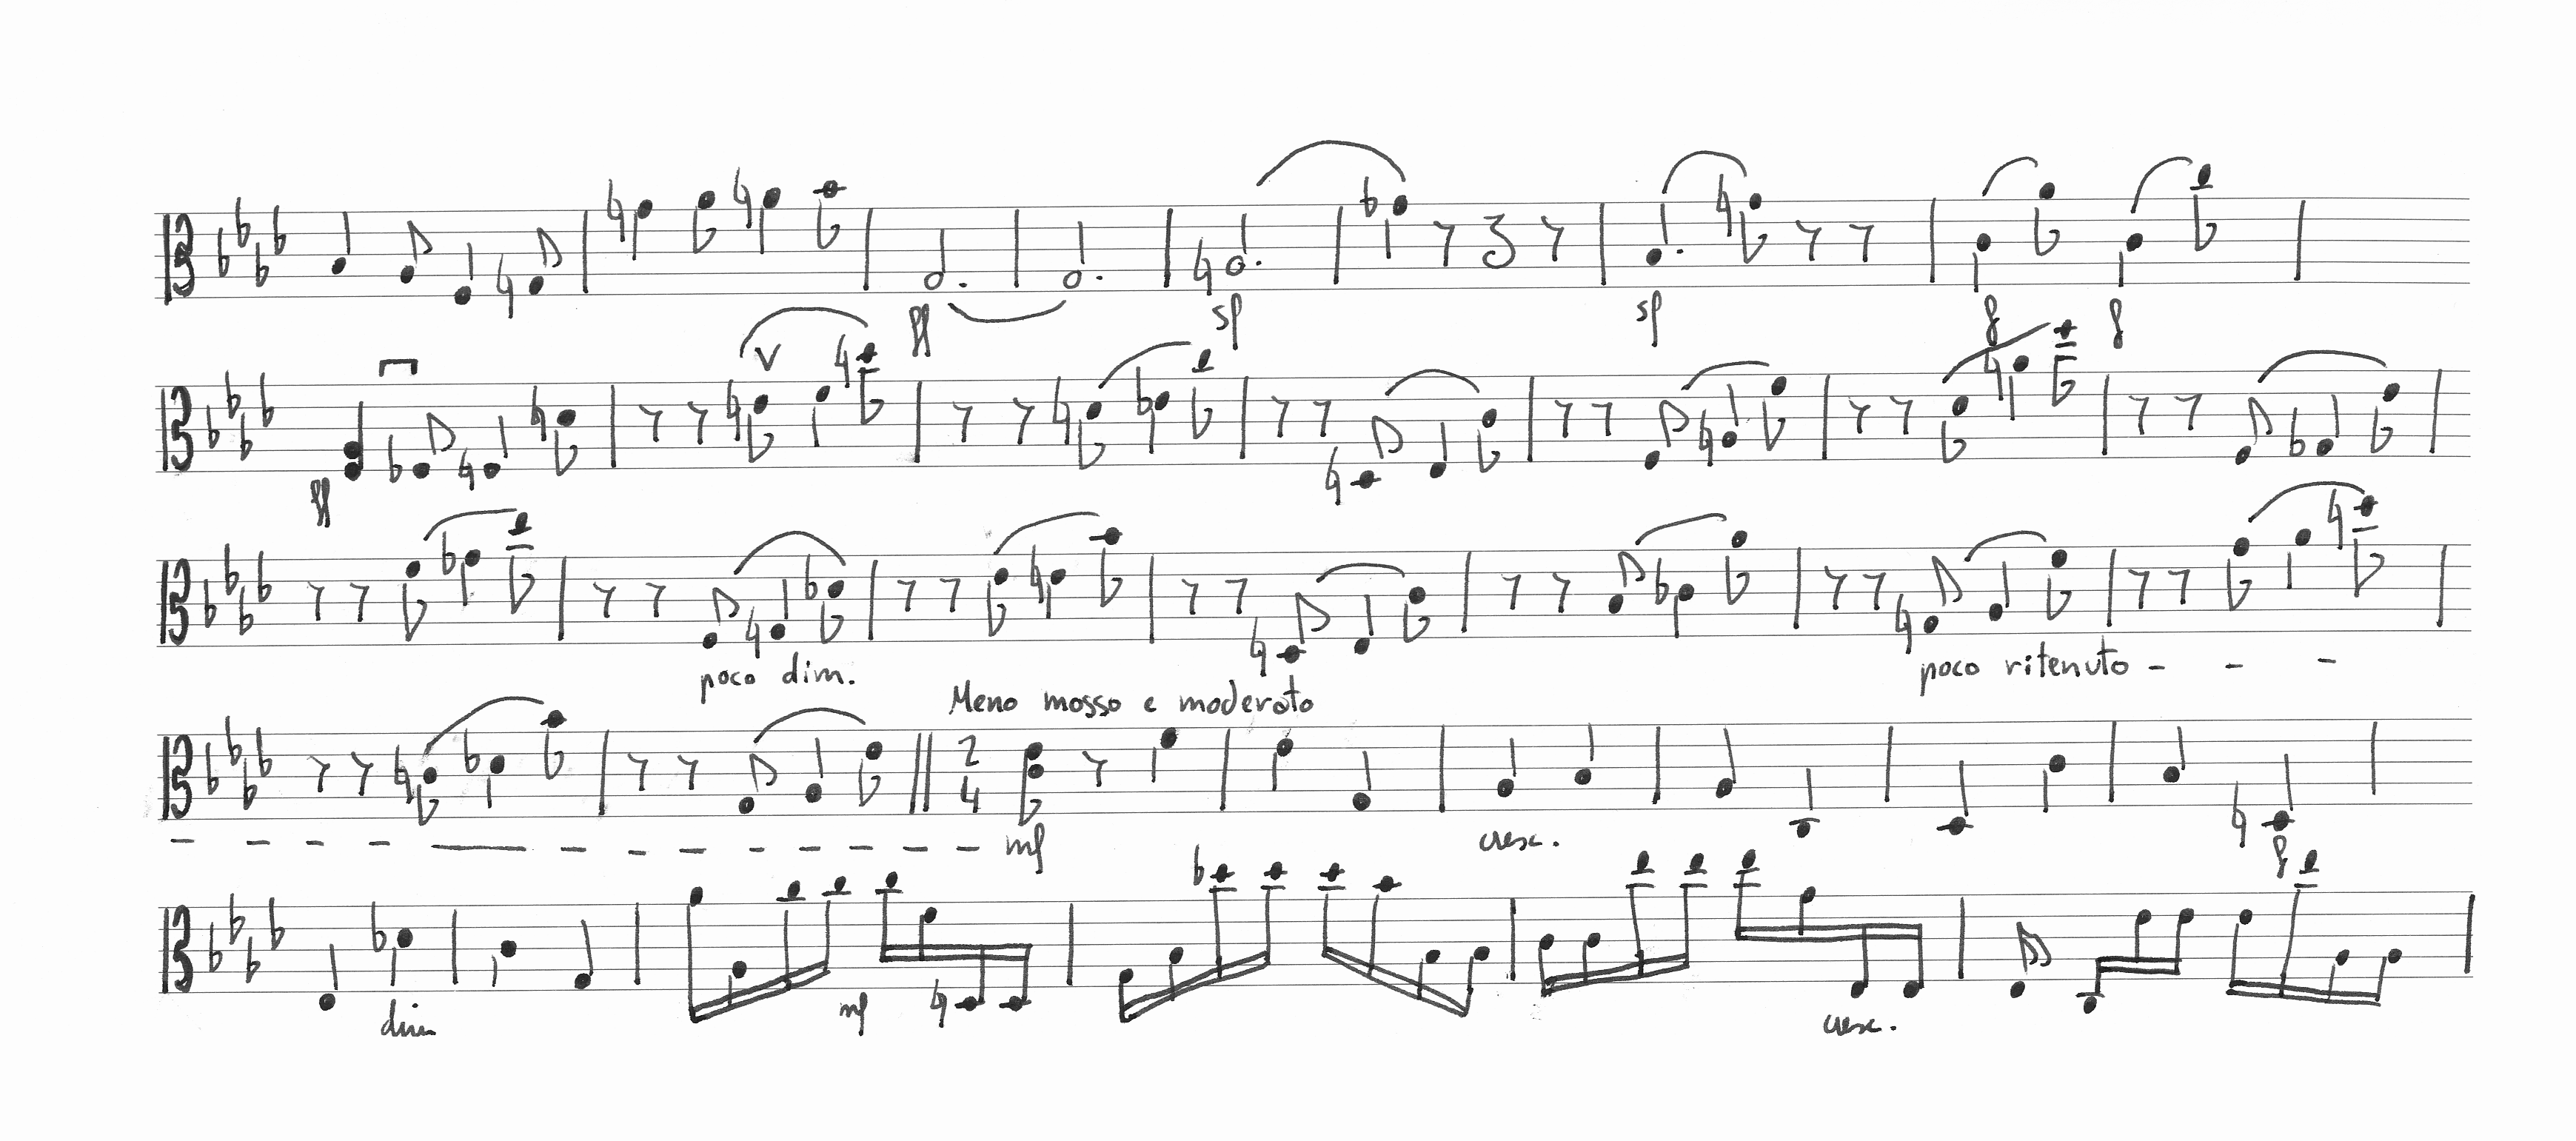 ff sf sf f f
ff
poco dim. poco ritenuto - - -
Meno mosso e moderato
2
4
mf cresc. f
dim mf cresc.